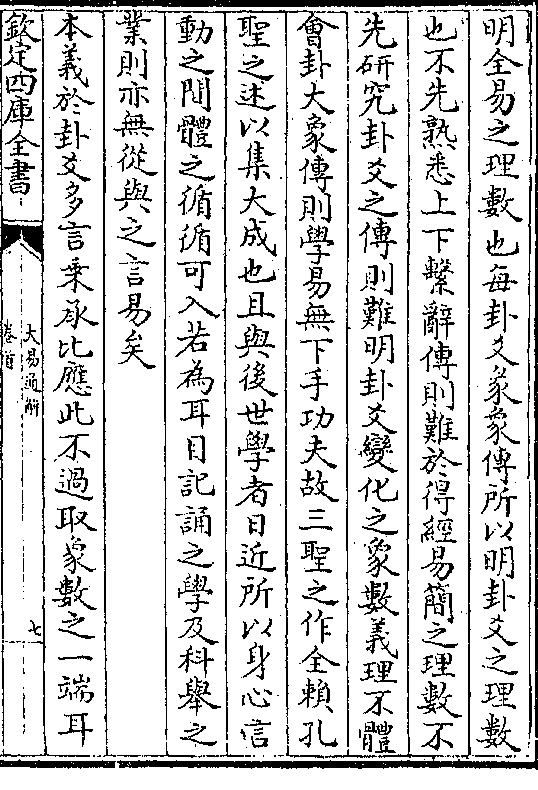 明全易之理數也每卦爻彖象傳所以明卦爻之理數
也不先熟悉上下繫辭傳則難於得經易簡之理數不
先研究卦爻之傳則難明卦爻變化之象數義理不體
會卦大象傳則學易無下手功夫故三聖之作全賴孔
聖之述以集大成也且與後世學者日近所以身心言
動之間體之循循可入若為耳目記誦之學及科舉之
業則亦無從與之言易矣
本義於卦爻多言乗承比應此不過取象數之一端耳
欽定四庫全書
大易通解
卷首
七